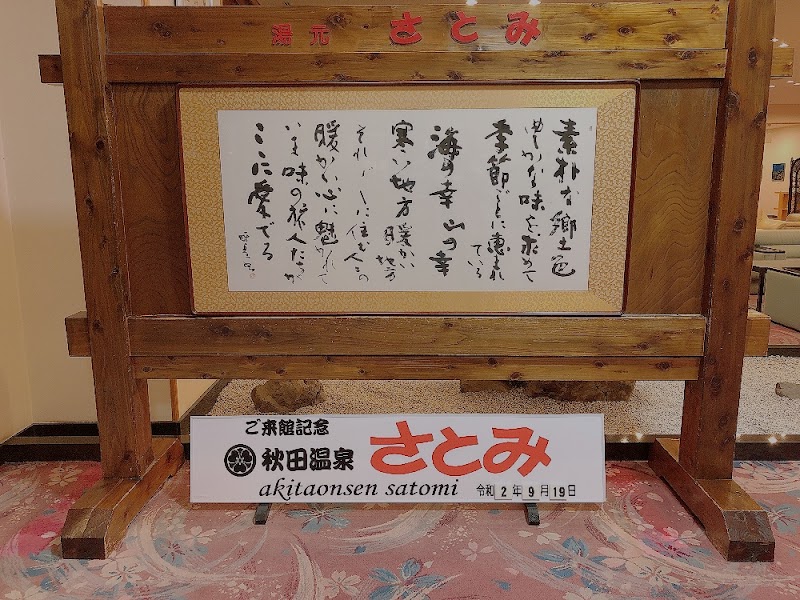 湯元 さとみ
素朴な郷土色
ゆたかな味を求めて
季節ごとに恵まれ
ている
海の幸山の幸
寒い地方暖かい地方
それぞれに住む人々の
暖かい心に魅かれて
いま味の旅人たちが
ここに愛でる
ご来館記念
秋田温泉 さとみ
akitaonsen satomi 令和2年9月19日